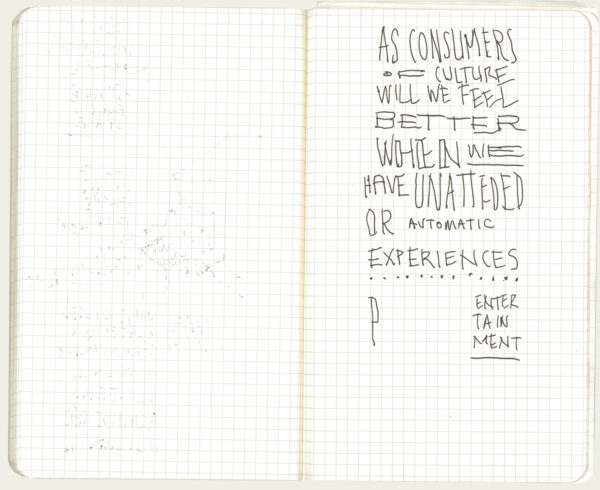 AS CONSUMERS
OF CULTURE
WILL WE FEEL
BETTER
WHEN WE
HAVE UNATTEDED
OR AUTOMATIC
EXPERIENCES
P
ENTER
TAIN
MENT